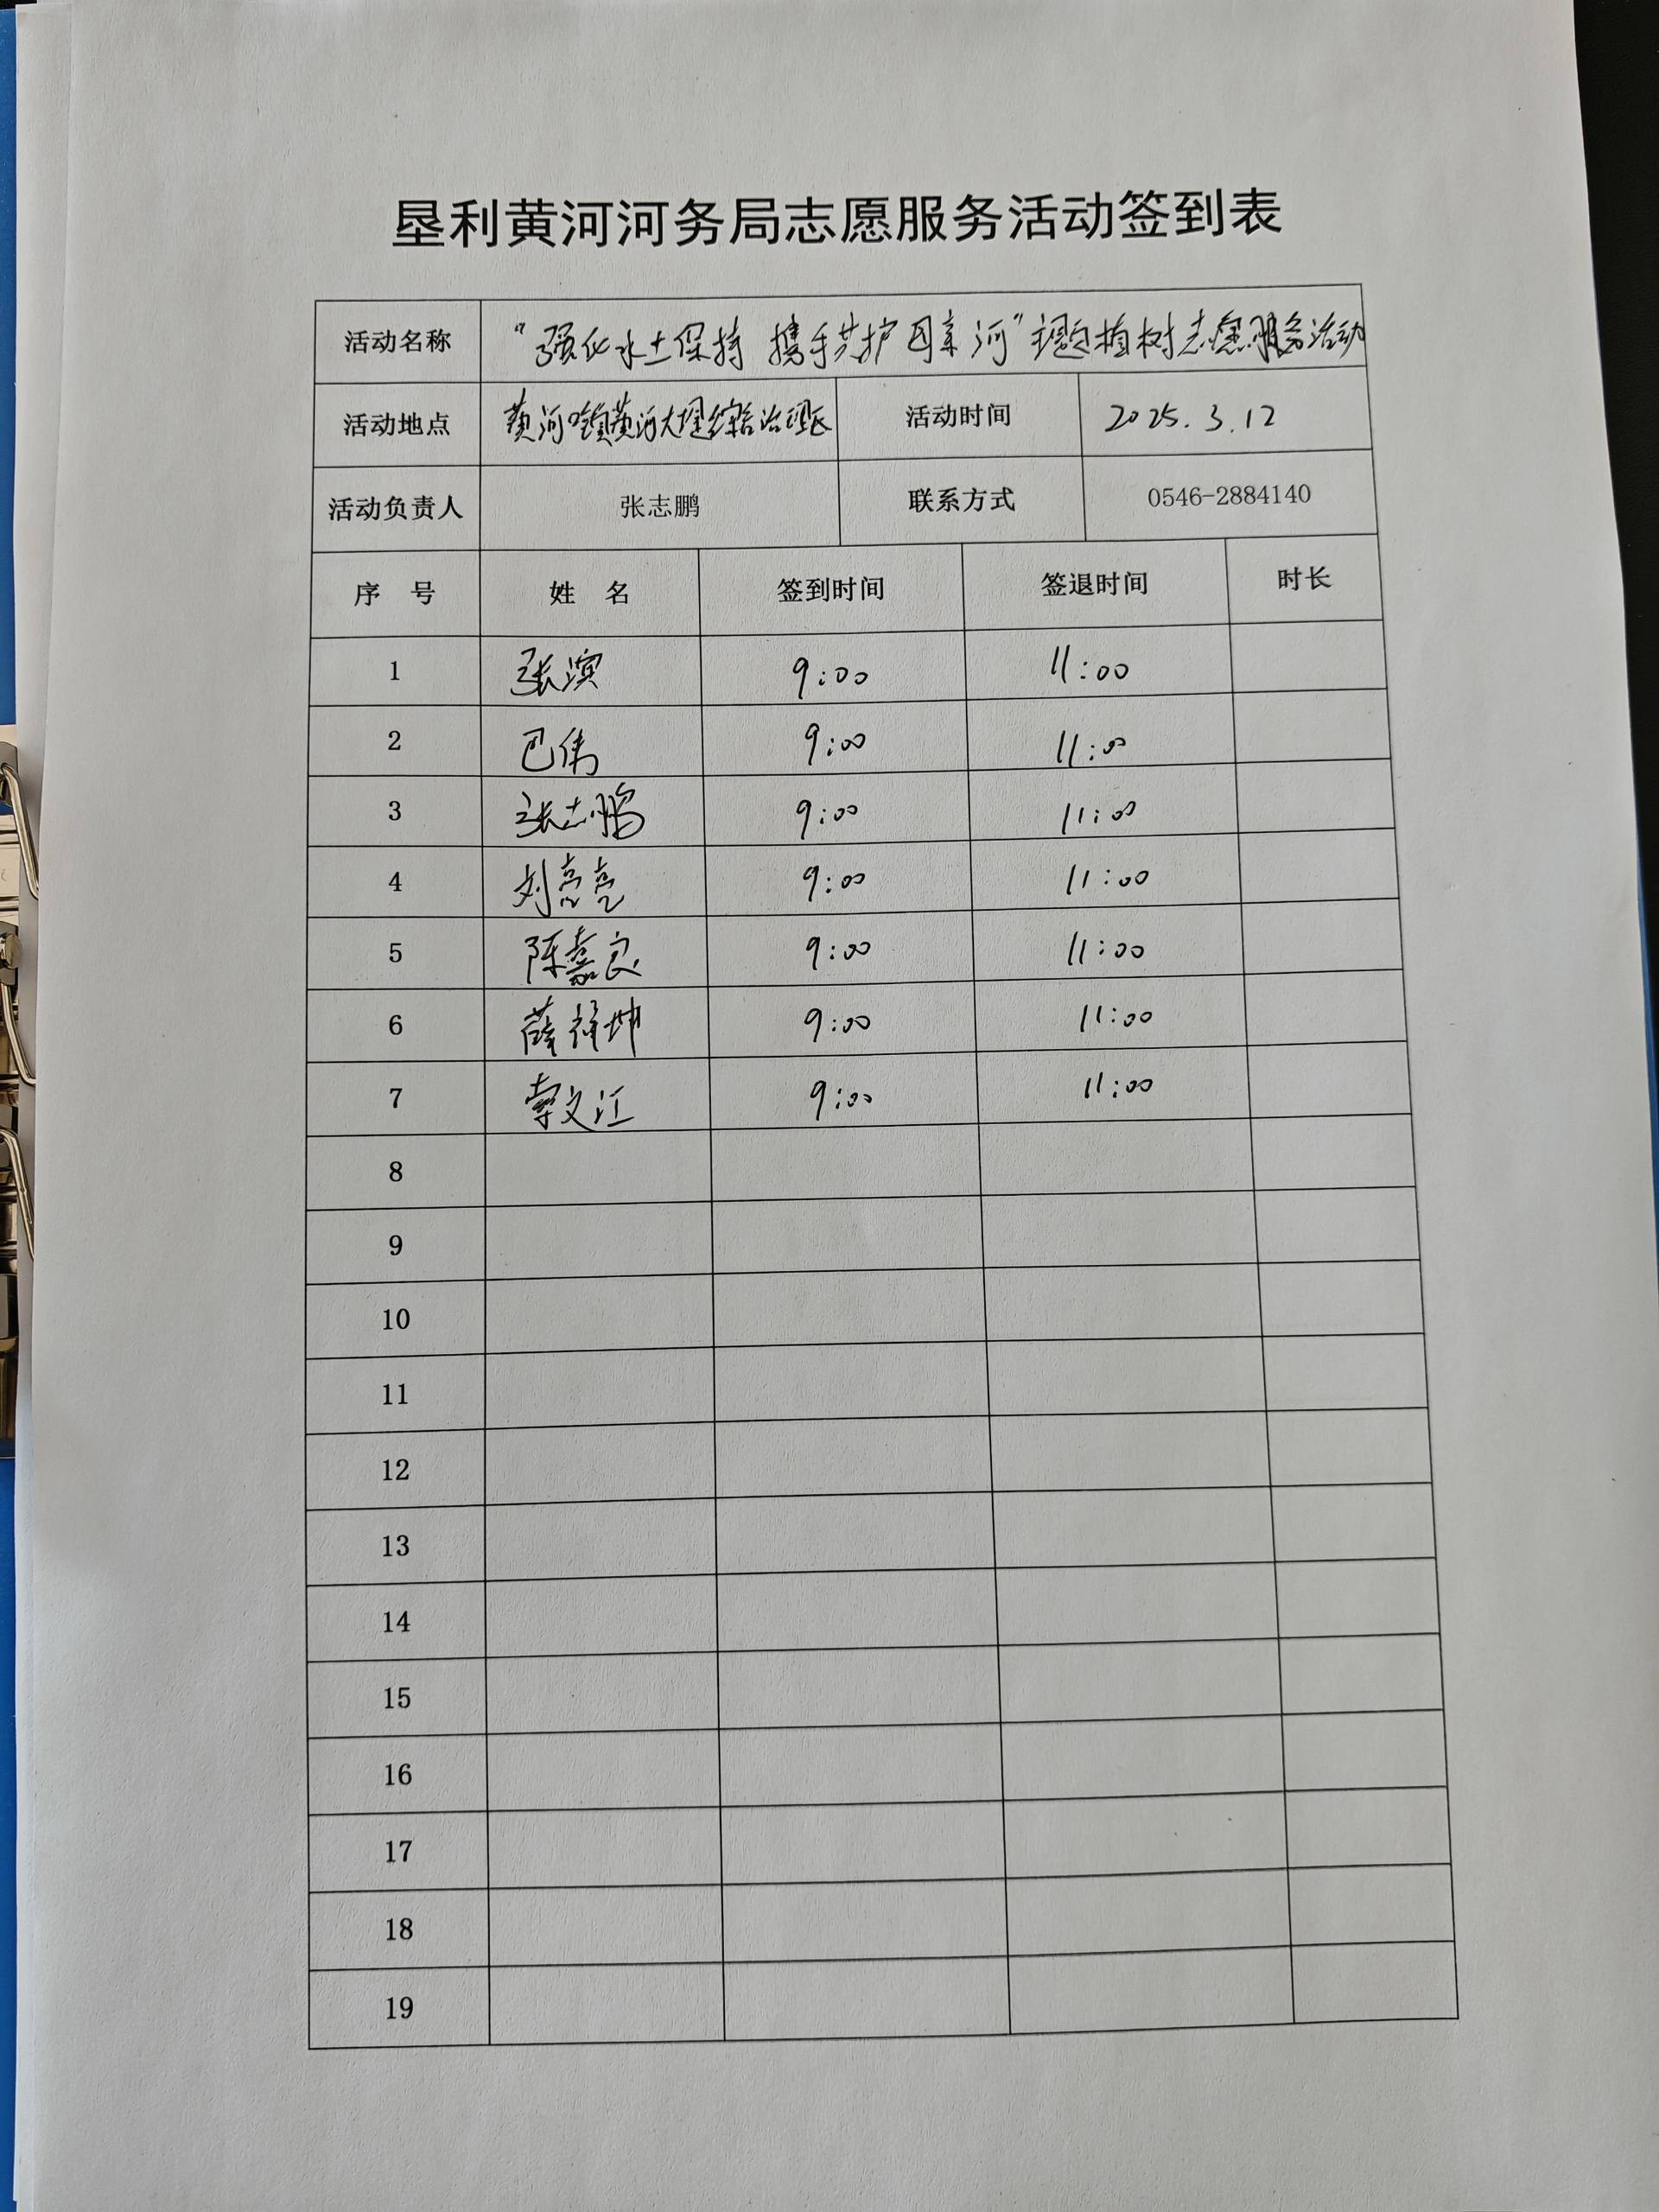 垦利黄河河务局志愿服务活动签到表
活动名称 “强化水土保持 携手共护母亲河”主题植树志愿服务活动
活动地点 黄河口镇黄河大堤综合治理区 活动时间 2025.3.12
活动负责人 张志鹏 联系方式 0546-2884140
序 号 姓 名 签到时间 签退时间 时长
1 张滨 9:00 11:00
2 巴伟 9:00 11:00
3 张志鹏 9:00 11:00
4 刘亮亮 9:00 11:00
5 陈嘉良 9:00 11:00
6 9:00 11:00
7 索文江 9:00 11:00
8
9
10
11
12
13
14
15
16
17
18
19